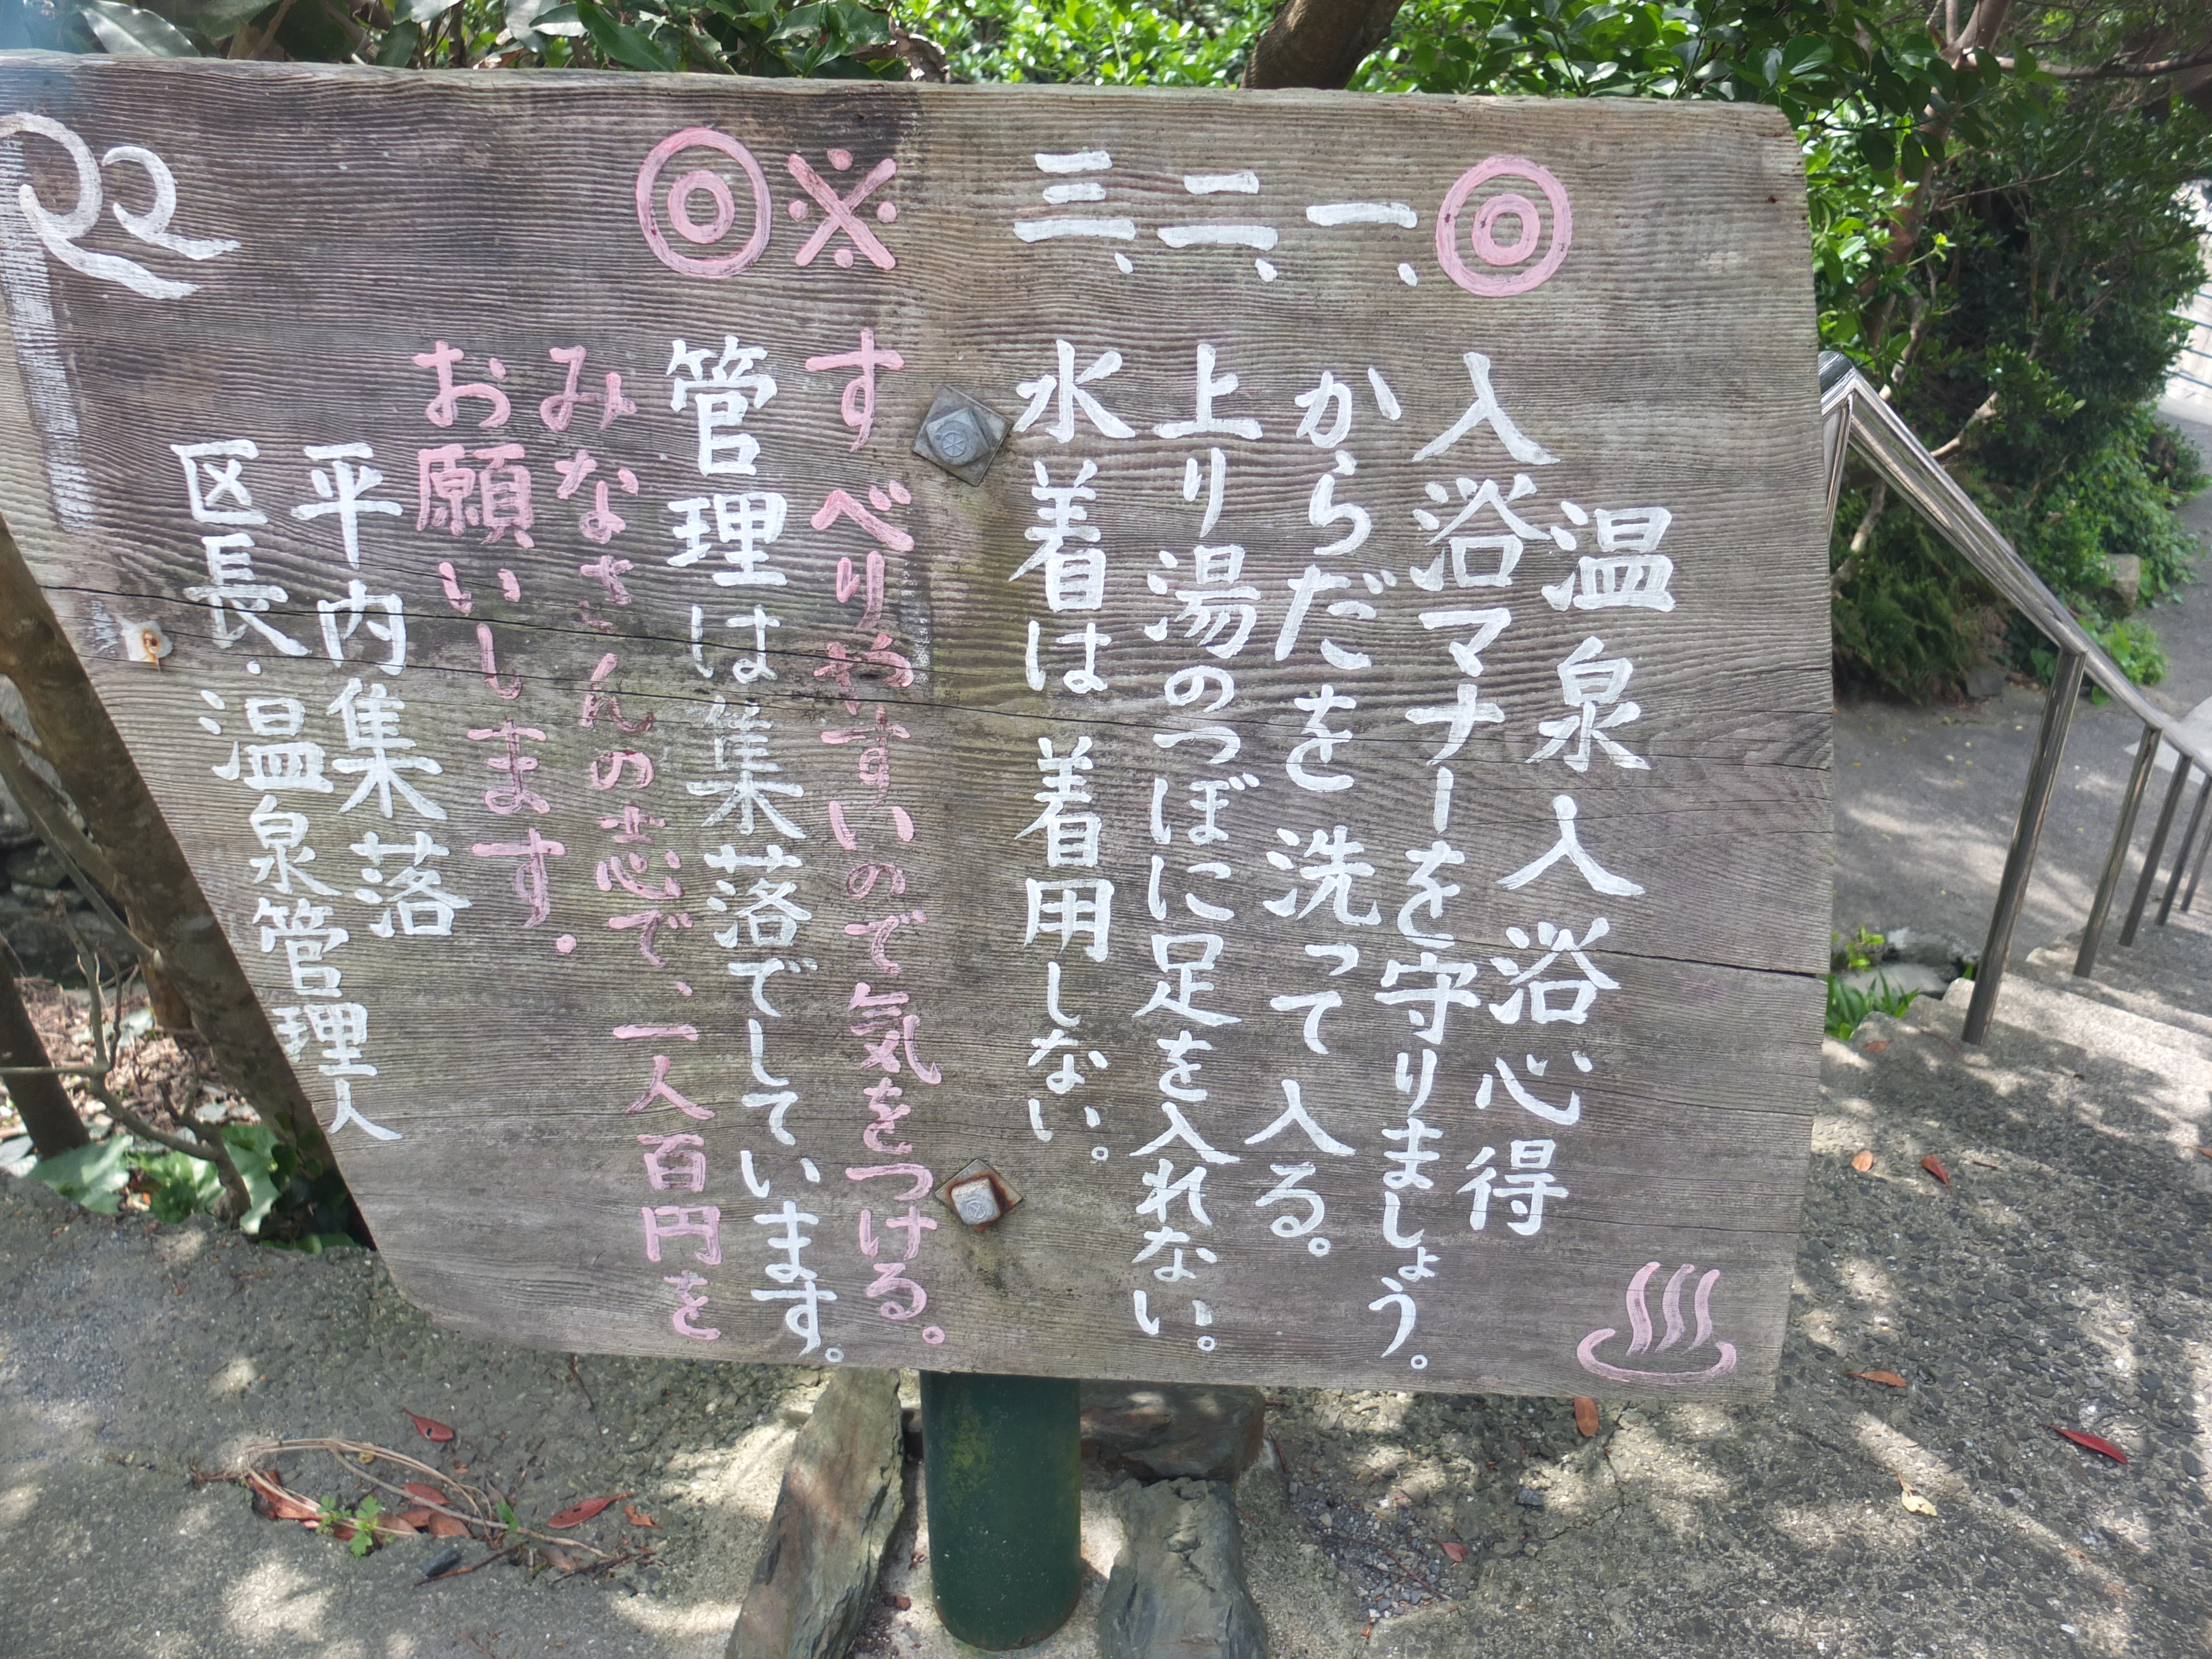 温泉入浴心得
◎入浴マナーを守りましょう。
一、からだを洗って入る。
二、上り湯のつぼに足を入れない。
三、水着は着用しない。
※すべりやすいので気をつける。
◎管理は集落でしています。
みなさんの志で、一人百円を
お願いします。
平内集落
区長・温泉管理人